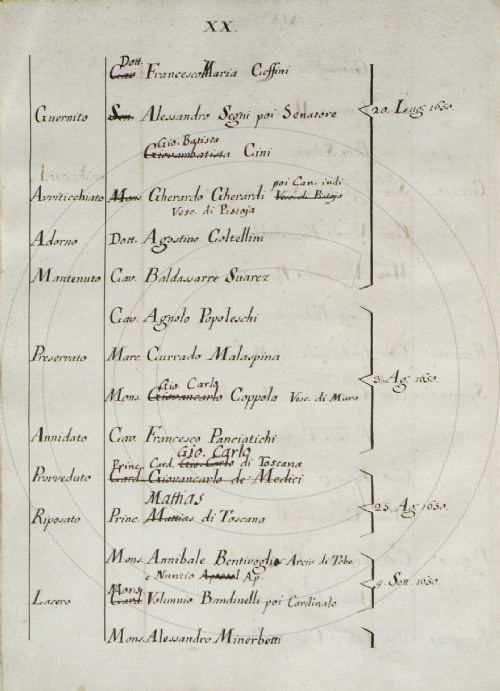 XX.
Dott.
Cav. Francesco Maria Ceffini
Guernito Sen. Alessandro Segni poi Senatore 20. Lug. 1650.
Gio. Batista
Giovambatista Cini
poi Can. indi
Avviticchiato Mons. Gherardo Gherardi Vesc. di Pistoja
Vesc. di Pistoja
Adorno Dott. Agostino Coltellini
Mantenuto Cav. Baldassarre Suarez
Cav. Agnolo Popoleschi
Preservato Marc. Currado Malaspina
Ag. 1650.
Gio. Carlo
Mons. Giovancarlo Coppola Vesc. di Muro
Annidato Cav. Francesco Panciatichi
Gio. Carlo
Princ. Card. Gio. Carlo di Toscana
Provveduto Card. Giovancarlo de Medici
Mattias
Riposato Princ. Mattias di Toscana 23. Ag. 1650.
Mons. Annibale Bentivoglio Arciv. di Tebe
e Nunzio Ap.
9. Sett. 1650.
Mons.
Lacero Volunnio Bandinelli poi Cardinale
Mons. Alessandro Minerbetti